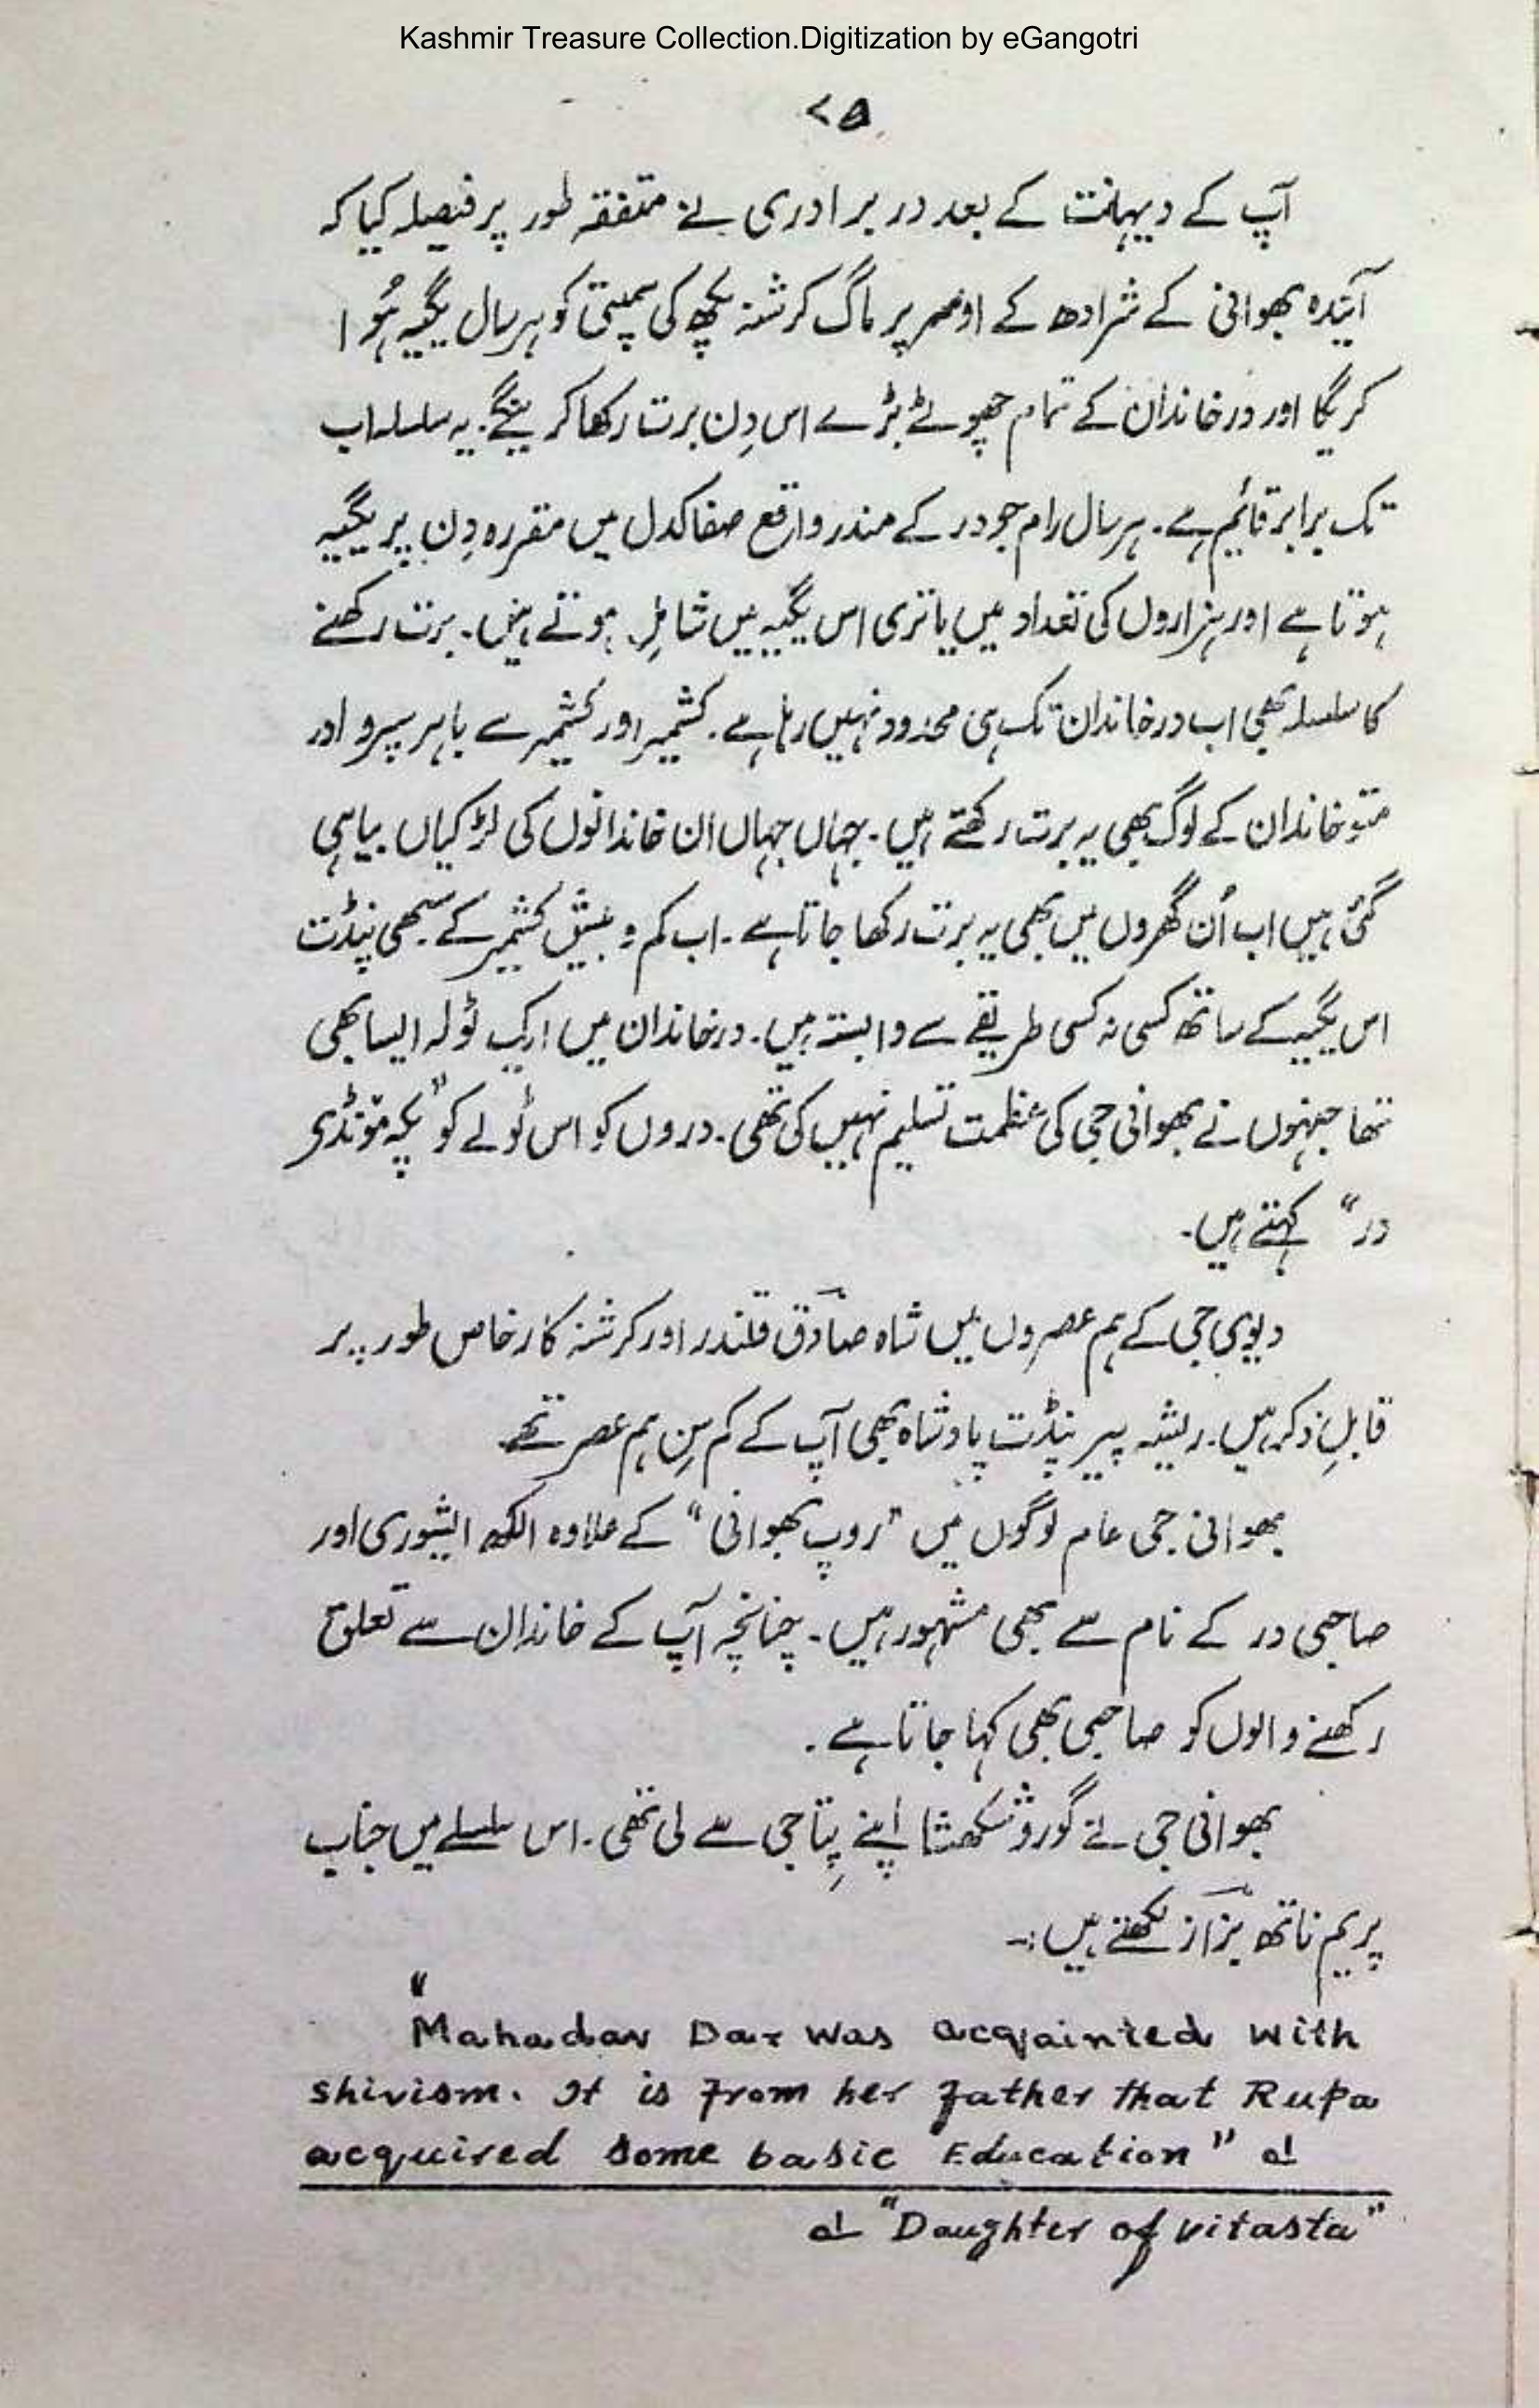 Kashmir Treasure Collection.Digitization by eGangotri
۷۵
آپ کے دیہانت کے بعد در برادری نے متفقہ طور پر فیصلہ کیا کہ
آیٔندہ بھوانی کے شرادھ کے اوٚسر پر ماگ کرشنہ پچھ کی سپتمی کو ہر سال یگیہ ہُوا
کریگا اور در خاندان کے تمام چھوٹے بڑے اس دِن برت رکھا کرینگے۔ یہ سلسلہ اب
تک برابر قائیم ہے۔ ہر سال رام جو در کے مندر واقع صفاکدل میں مقررہ دِن پر یگیہ
ہوتا ہے اور ہزاروں کی تعداد میں یاتری اس یگیہ میں شامِل ہوتے ہیں۔ برت رکھنے
کا سلسلہ بھی اب در خاندان تک ہی محدود نہیں رہا ہے۔ کشمیر اور کشمیر سے باہر سپرو اور
منٹو خاندان کے لوگ بھی یہ برت رکھتے ہیں۔ جہاں جہاں ان خاندانوں کی لڑکیاں بیاہی
گئی ہیں اب اُن گھروں میں بھی یہ برت رکھا جاتا ہے۔ اب کم و بیش کشمیر کے سبھی پنڈت
اس یگیہ کے ساتھ کسی نہ کسی طریقے سے وابستہ ہیں۔ در خاندان میں ایک ٹولہ ایسا بھی
تھا جنہوں نے بھوانی جی کی عظمت تسلیم نہیں کی تھی۔ دروں کو اس ٹولے کو "پکہ مؤنڈی
در" کہتے ہیں۔
دیوی جی کے ہم عصروں میں شاہ صادق قلندر اور کرشنہ کار خاص طور پر
قابلِ ذکر ہیں۔ ریشہ پیر پنڈت پادشاہ بھی آپ کے کم سِن ہم عصر تھے
بھوانی جی عام لوگوں میں "روپ بھوانی" کے علاوہ الکھ ایشوری اور
صاحبی در کے نام سے بھی مشہور ہیں۔ چنانچہ آپ کے خاندان سے تعلق
رکھنے والوں کو صاحبی بھی کہا جاتا ہے۔
بھوانی جی نے گورو شکھشا اپنے پِتا جی سے لی تھی۔ اس سلسلے میں جناب
پریم ناتھ بزاز لکھتے ہیں:-
"Mahadav Dar was acqainted with
shivism. It is from her father that Rupa
acquired some basic Education" ؎۱
؎۱ "Daughter of vitasta"